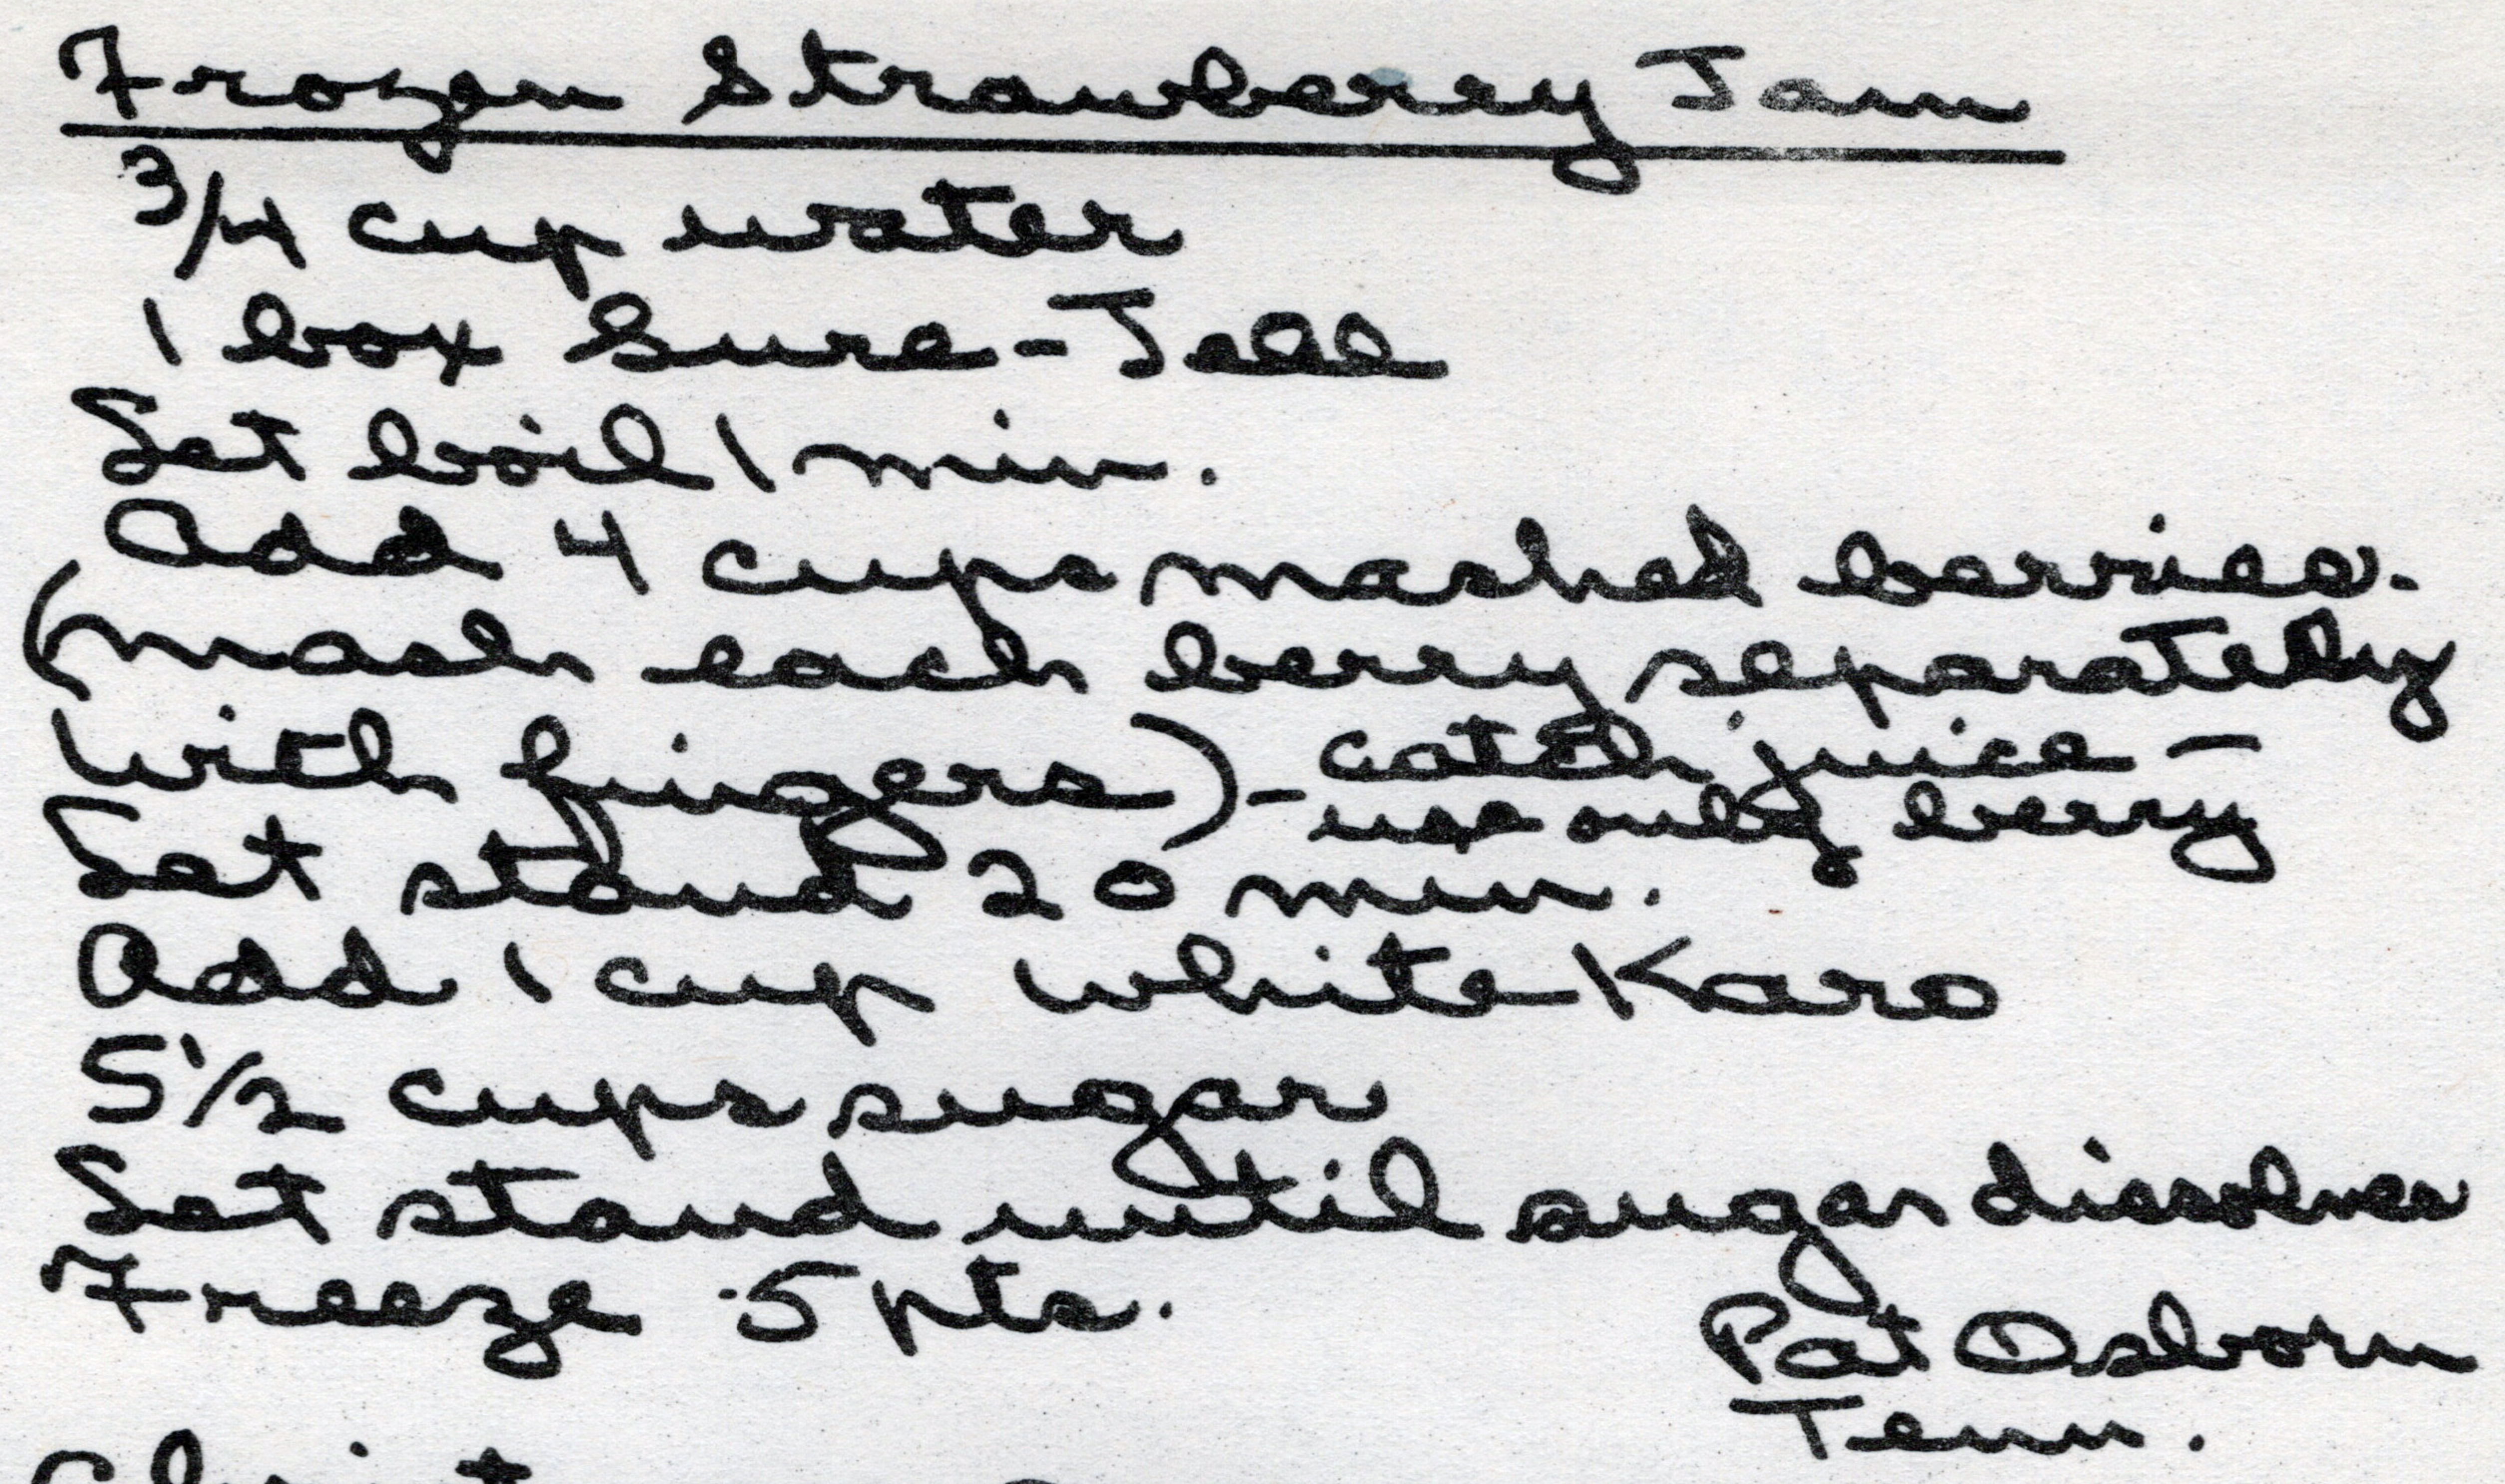 Frozen Strawberry Jam
3/4 cup water
1 box Sure-Jell
Let boil 1 min.
Add 4 cups mashed berries.
(mash each berry separately
with fingers) - catch juice -
use only berry
Let stand 20 min.
Add 1 cup white Karo
5 1/2 cups sugar
Let stand until sugar dissolves
Freeze 5 pts.
Pat Osborn
Tenn.